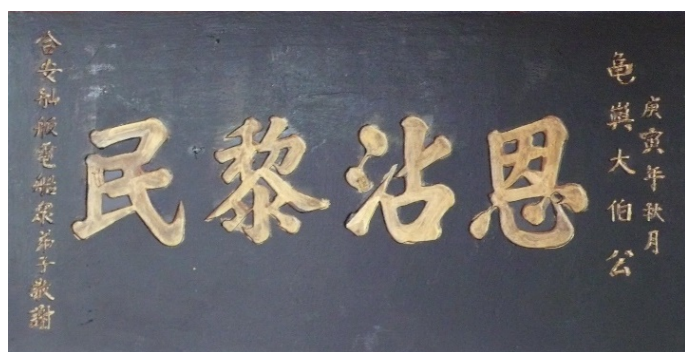 庚寅年秋月
亀嶼大伯公
恩沾黎民
合安舢舨電船眾弟子敬謝